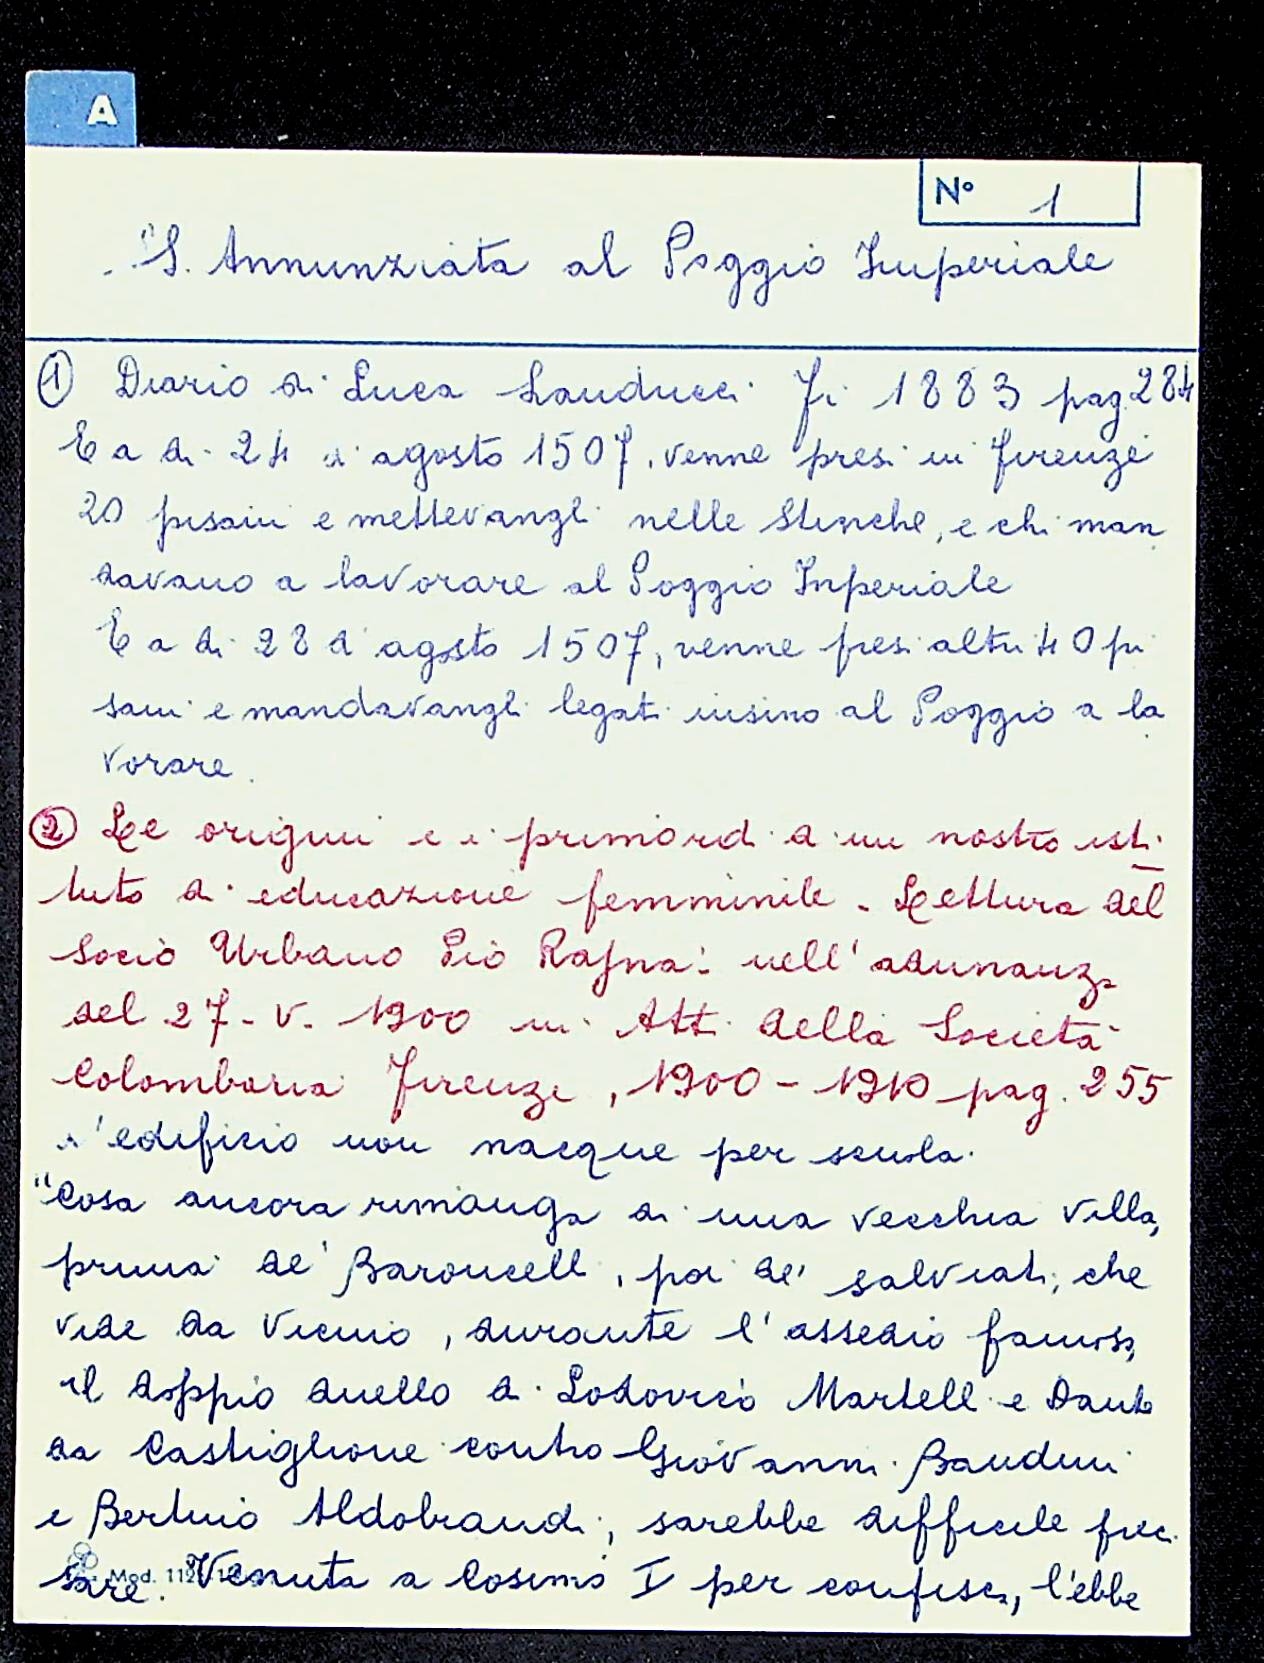 A
N° 1
"S. Annunziata al Poggio Imperiale
① Diario di Luca Landucci Fi 1883 pag. 284
E a di 24 d'agosto 1507, venne presi in Firenze
20 pisani e mettevangli nelle Stinche, e chi man
davano a lavorare al Poggio Inperiale
E a di 28 d'agosto 1507, venne presi altri 40 pi
sani e mandavangli legati insino al Poggio a la
vorare.
② Le origini e i primordi di un nostro isti
tuto di educazione femminile. Lettura del
Socio Urbano Pio Rajna: nell'adunanza
del 27-V-1900 in Atti della Società
Colombaria Firenze, 1900-1910 pag. 255
L'edificio non nacque per scuola.
"Cosa ancora rimanga di una vecchia villa,
prima de' Baroncelli, poi de' Salviati, che
vide da vicino, durante l'assedio famoso,
il doppio duello di Lodovico Martelli e Dante
da Castiglione contro Giovanni Bandini
e Bertino Aldobrandi, sarebbe difficile preci
sare. Venuta a Cosimo I per confisca, l'ebbe
Mod.